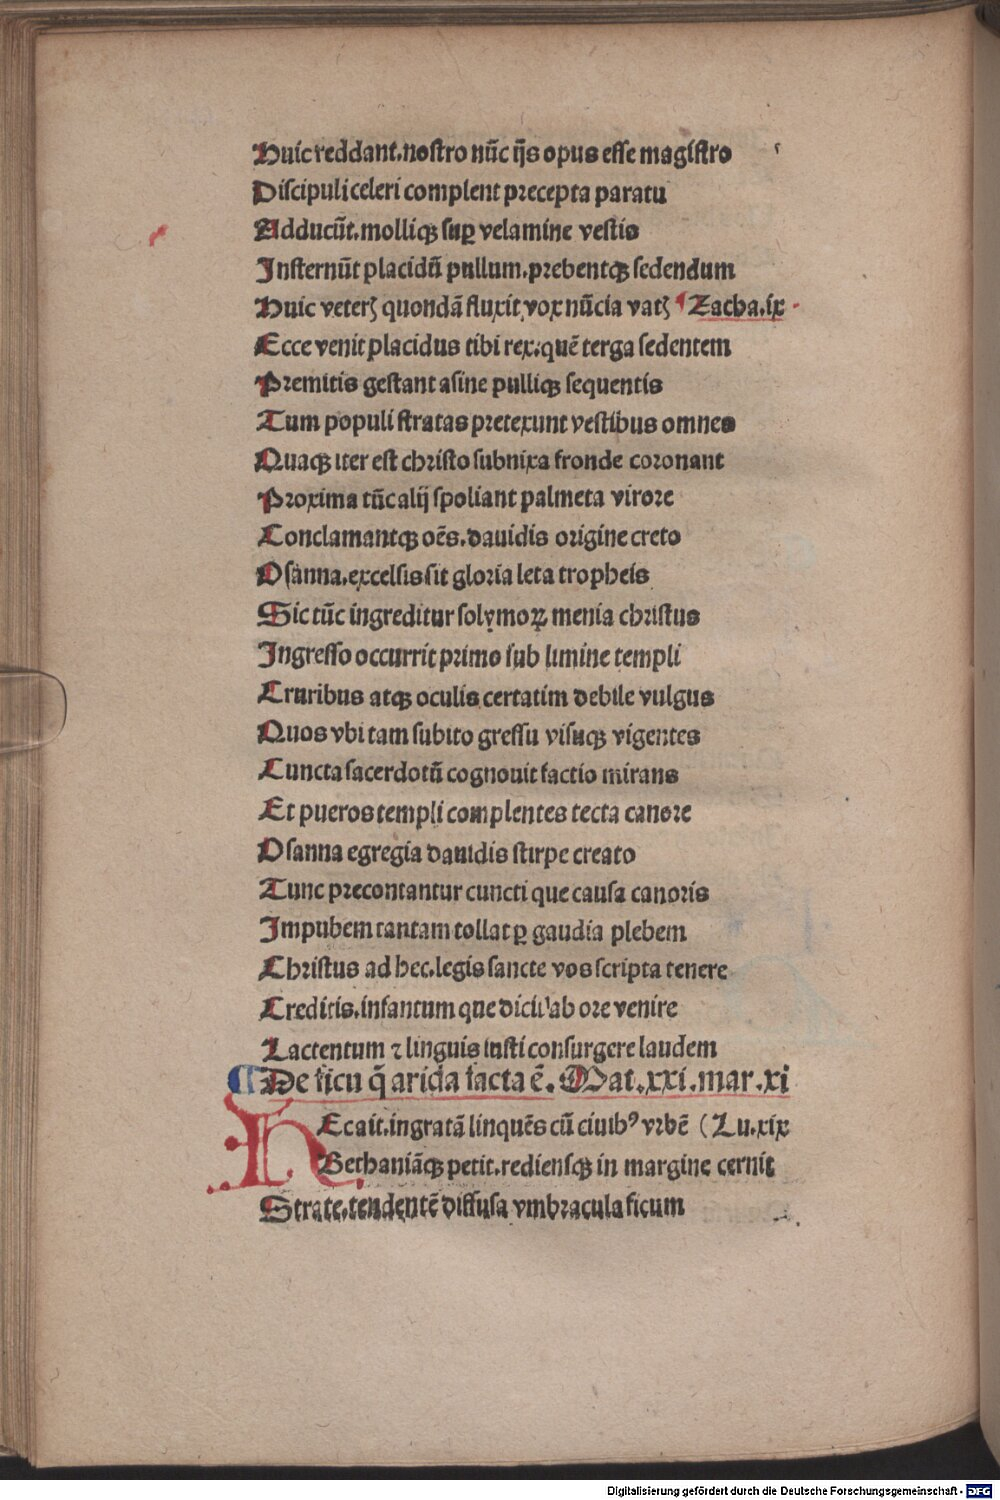 Huic reddant.nostro nūc ijs opus esse magistro
Discipuli celeri complent precepta paratu
Adducūt.molliqꝫ suꝑ velamine vestis
Insternūt placidū pullum.prebentqꝫ sedendum
Huic veterꝫ quondā fluxit vox nūcia vatꝫ Zacha.ix
Ecce venit placidus tibi rex:quē terga sedentem
Premitis gestant asine pulliqꝫ sequentis
Tum populi stratas pretexunt vestibus omnes
Quaqꝫ iter est christo subnixa fronde coronant
Proxima tūc alij spoliant palmeta virore
Conclamantqꝫ oēs.dauidis origine creto
Osanna.excelsis sit gloria leta tropheis
Sic tūc ingreditur solymoꝝ menia christus
Ingresso occurrit primo sub limine templi
Cruribus atqꝫ oculis certatim debile vulgus
Quos vbi tam subito gressu visuqꝫ vigentes
Cuncta sacerdotū cognouit factio mirans
Et pueros templi complentes tecta canore
Osanna egregia dauidis stirpe creato
Tunc precontantur cuncti que causa canoris
Impubem tantam tollat ꝑ gaudia plebem
Christus ad hec.legis sancte vos scripta tenere
Creditis.infantum que dicit ab ore venire
Lactentum ⁊ linguis iusti consurgere laudem
De ficu q̄ arida facta ē. Mat.xxi.mar.xi
HEc ait.ingratā linquēs cū ciuibꝰ vrbē (Lu.xix
Bethaniāqꝫ petit.rediensqꝫ in margine cernit
Strate.tendentē diffusa vmbracula ficum
Digitalisierung gefördert durch die Deutsche Forschungsgemeinschaft - DFG